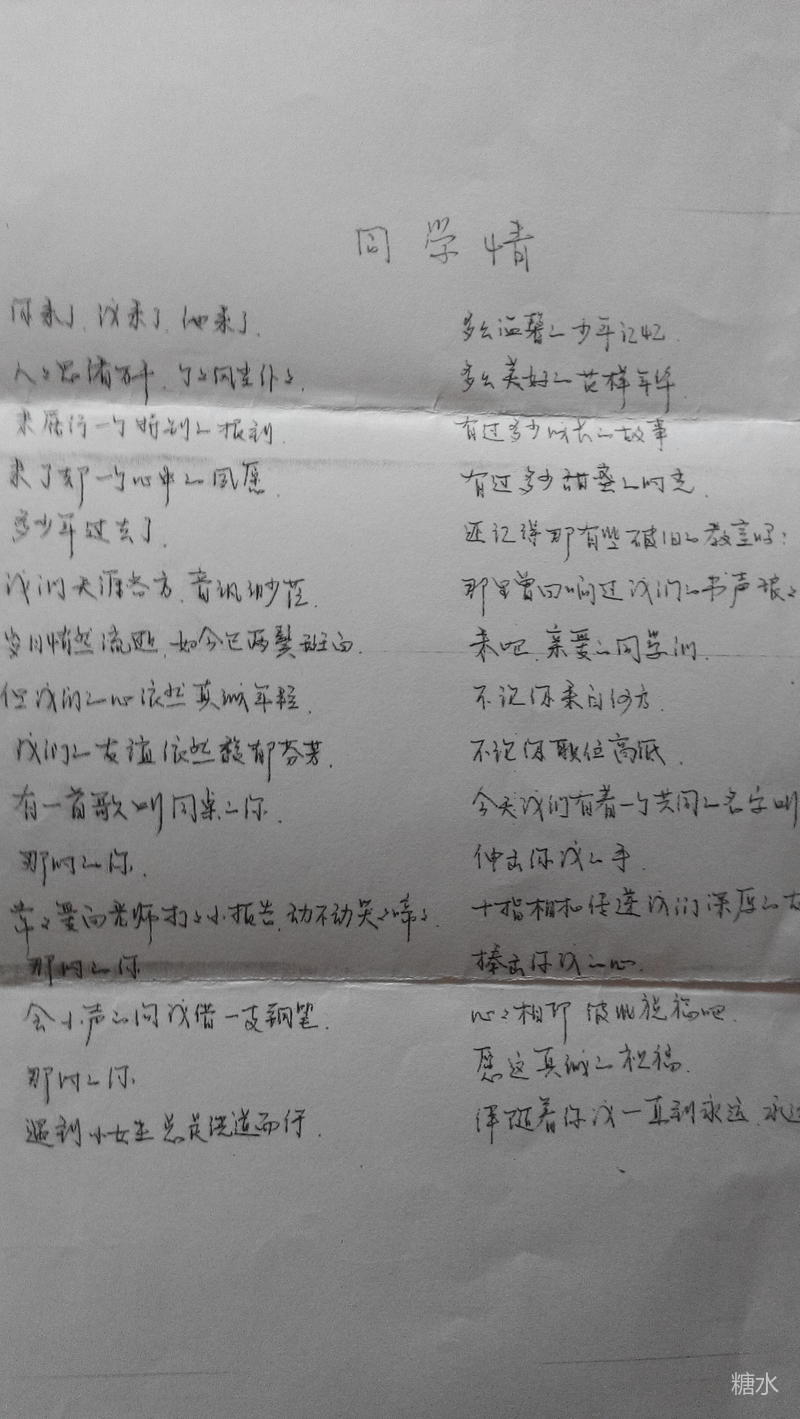 同学情
你来了、我来了、他来了、
人人思绪万千、个个风尘仆仆、
来履行一个特别的报到、
来了却一个心中的夙愿、
多少年过去了、
我们天涯各方、音讯渺茫、
岁月悄然流逝、如今已两鬓班白、
但我们的心依然真诚年轻、
我们的友谊依然馥郁芬芳、
有一首歌叫同桌的你、
那时的你、
常常爱向老师打打小报告、动不动哭哭啼啼、
那时的你
会小声的问我借一支钢笔、
那时的你、
遇到小女生总是绕道而行、
多么温馨的少年记忆、
多么美好的花样年华、
有过多少成长的故事
有过多少甜蜜的时光、
还记得那有些破旧的教室吗?
那里曾回响过我们的书声琅琅
来吧、亲爱的同学们、
不论你来自何方、
不论你职位高低、
今天我们有着一个共同的名字叫
伸出你我的手、
十指相扣传递我们深厚的友
捧出你我的心、
心心相印 彼此祝福吧、
愿这真诚的祝福、
伴随着你我一直到永远、永远
糖水